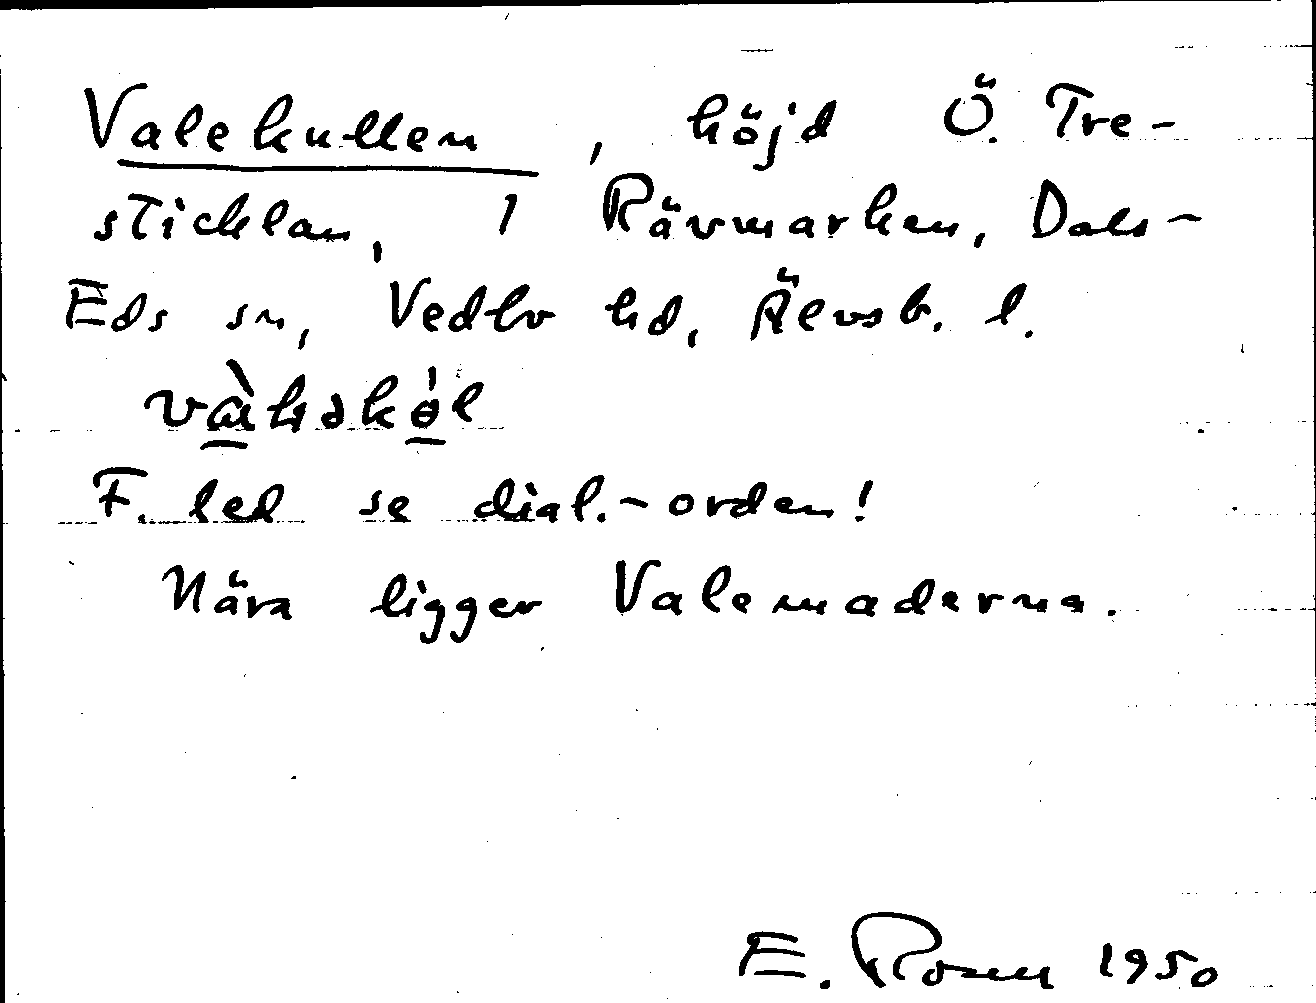 Valekullen, höjd Ö. Tre-
sticklan, 1 Rävmarken, Dals-
Eds sn, Vedbo hd, Älvsb. l.
F. led se dial.-orden!
Nära ligger Valemaderna.
E. Rosen 1950